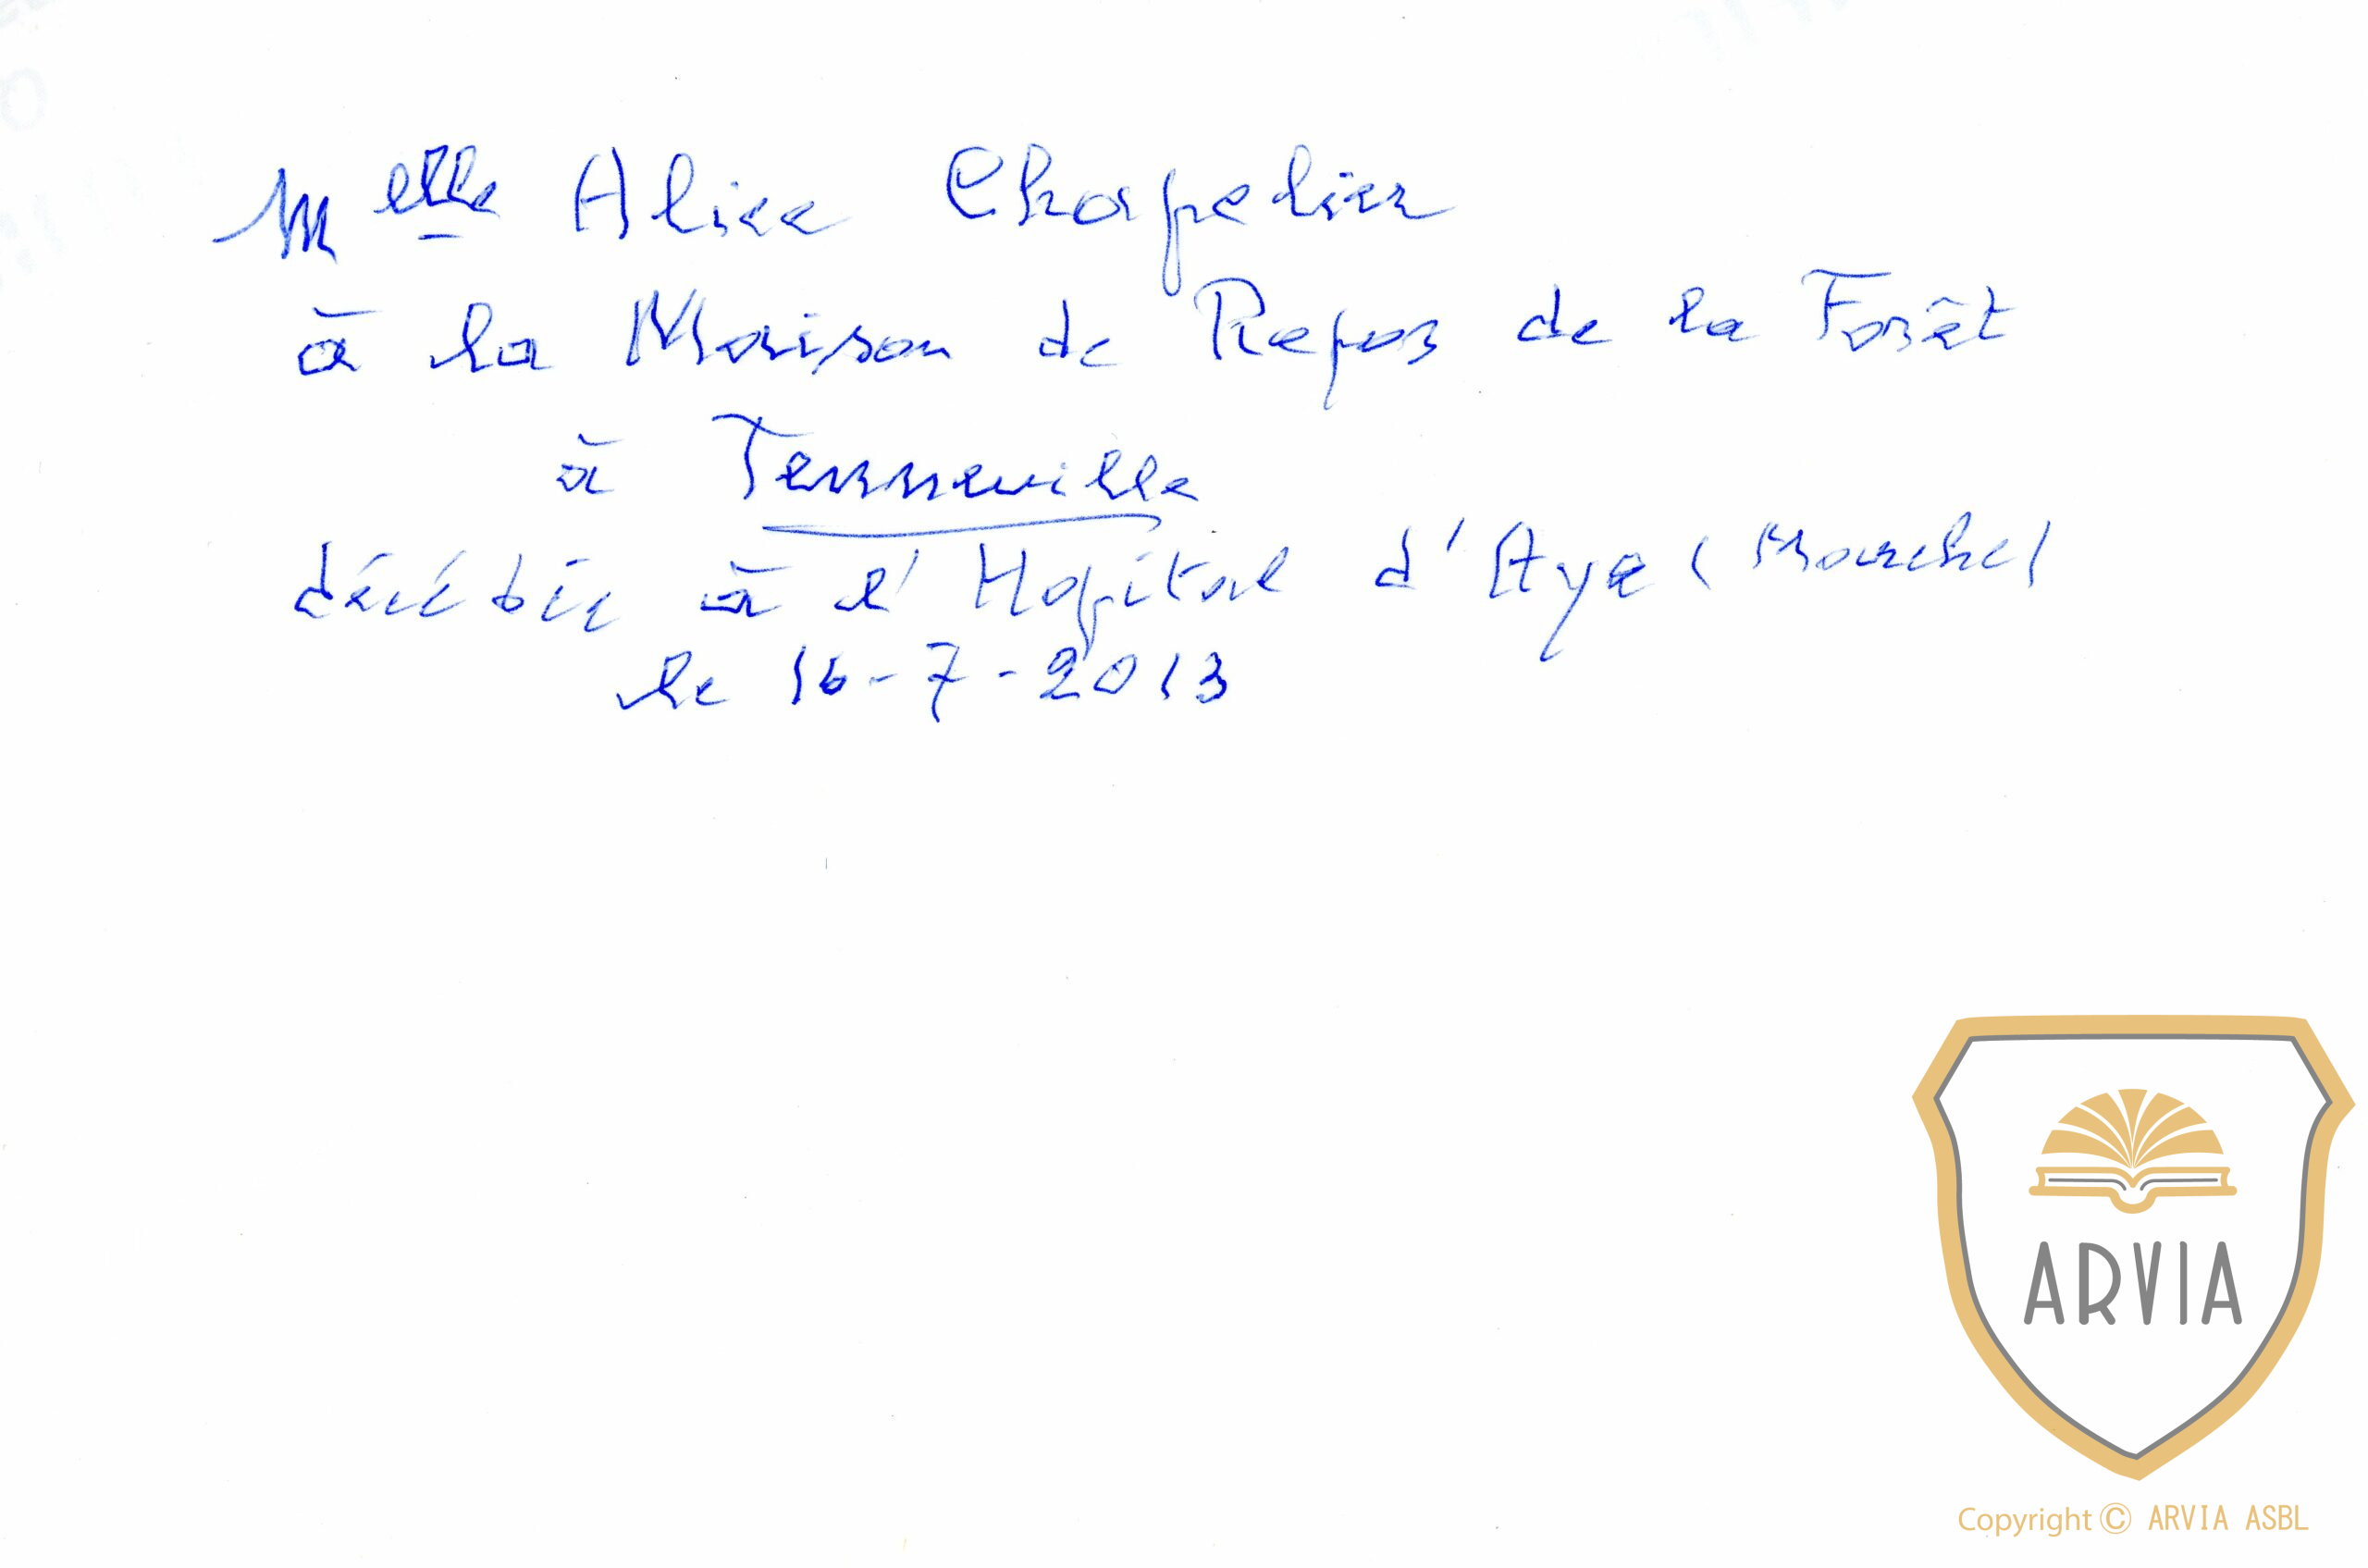 Melle Alice Chapelier
à la Maison de Repos de la Forêt
à Tenneville
décédée à l'Hopital d'Aye (Marche)
le 16-7-2013
ARVIA
Copyright © ARVIA ASBL